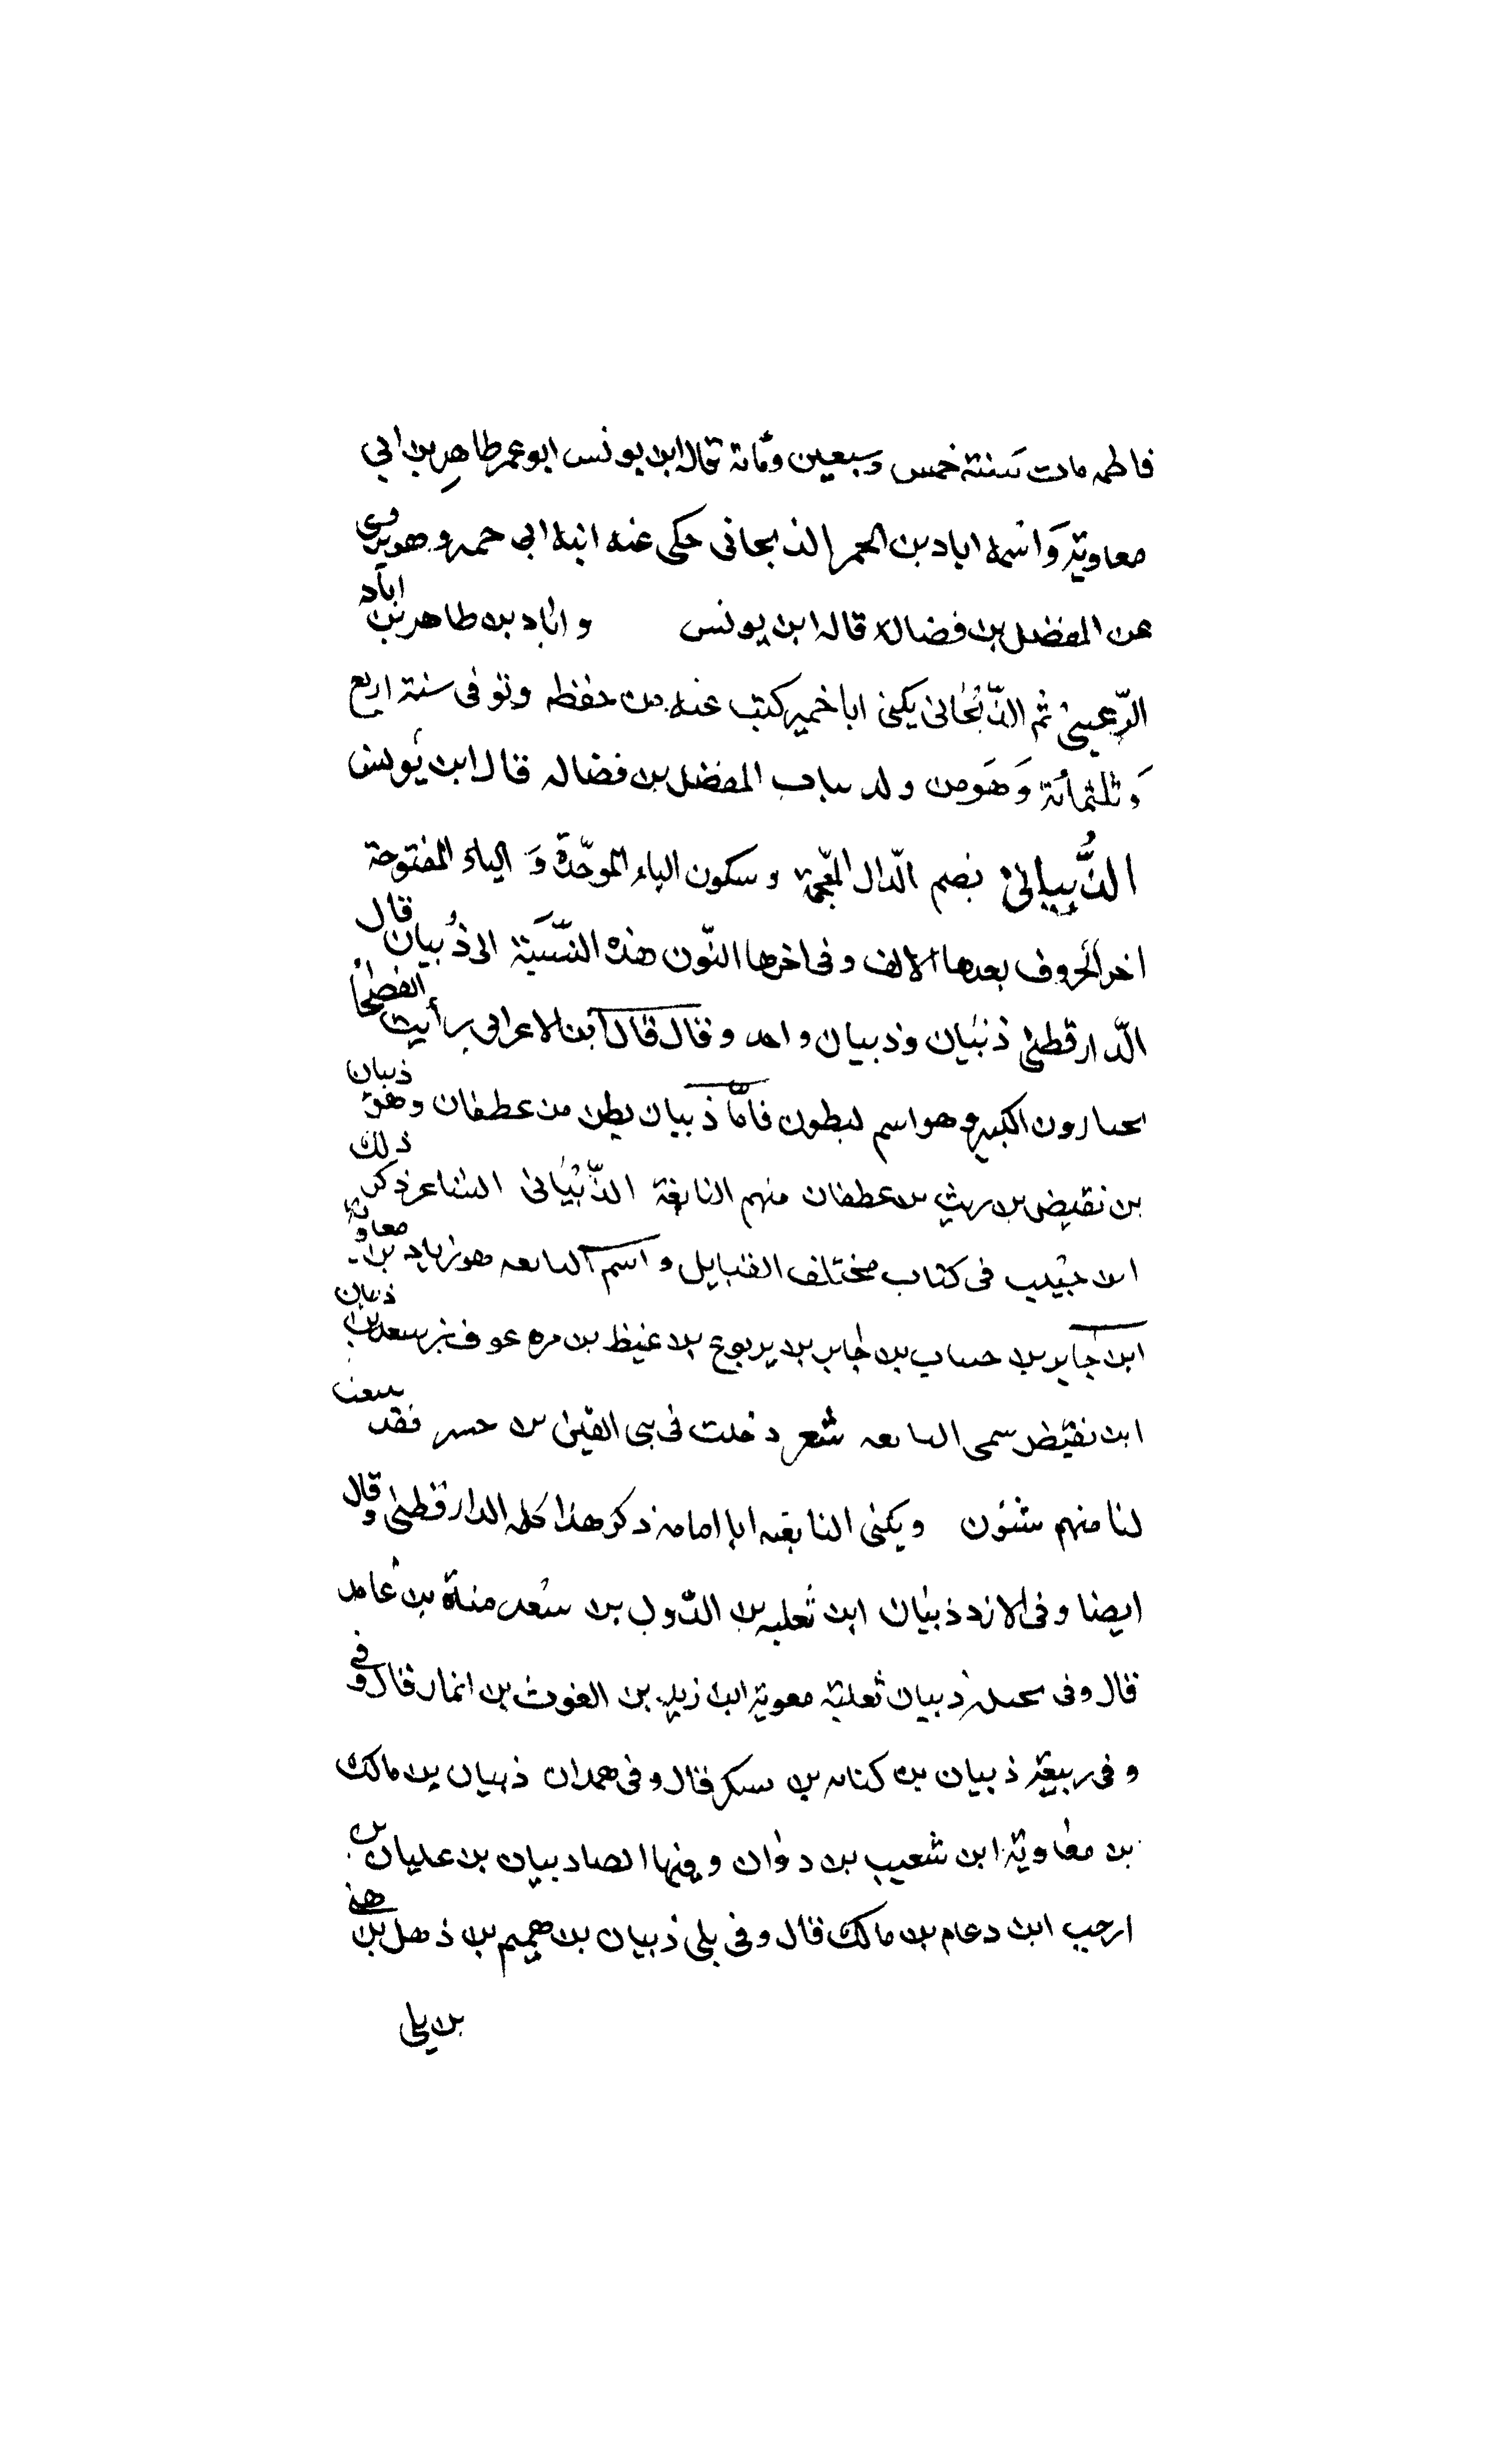 فاطمه مات سَنة خمس وسبعين ومأته قاله ابن يونس ابو عمر طاهِر بن ابي
معاويَة وَاسمه اباد بن الحمر الذبحانى حكى عنه ابنه ابى حمير وهو يروى
عن المفضل بن فضالة قاله ابن يونس واباد بن طاهر بن اباد
الرّعينى ثم الذّبحانى يكنى ابا خمير كتب عنه من حفظه وتوفى سنة اربع
وَثلثمائة وَهَو من ولد المفضل بن فضاله قال ابن يُونس
الذُّبيانىُ بضم الذّال المعّجمة وسكون الباء الموحّدة وَ الياء المفتوحة
اخر الحروف بعدها الالف وفى اخرها النّون هذه النّسَبة الى ذُبيان قال
الدّارقطنى ذبيان وذبيان واحد وقال قال ابن الاعرابى رأيت الفصحا
يختارون الكسر وهو اسم لبطون فامّا ذبيان بطن من غطفان وهو ذبيان
بن نقيض بن ريث بن غطفان منهم النابغة الذّبْيَانى الشاعر ذكر ذلك
ابن حَبيب فى كتاب مختلف القبايل واسم النابغه هو زياد بن معاوية
ابن جابر بن حساب بن جابر بن يربوع بن غيظ بن مره عوف بن سعد بن ذبيان
ابن نقيض سمى النابغه شعر دخلت فى بنى القين بن حسر فقد نبغت
لنا منهم شئون ويكنى النابغه ابا امامه ذكر هذا كله الدارقطنى وقال
ايضا وفى الازد ذبيان ابن ثعلبه بن الدّول بن سَعد مناة بن غامد
قال وفى بحيله ذبيان ثعلبة معوية ابن زيد بن الغوث بن انمار قال وفى
وفى ربيعَة ذبيان بن كنانه بن يسكر قال وفى همدان ذبيان بن مالك
بن معاوية ابن شعيب بن دوان ومنها ايضا ذبيان بن عليان بن
ارحب ابن دعام بن مالك قال وفى بلى ذبيان بن هميم بن ذهل بن هنى
بن بلى